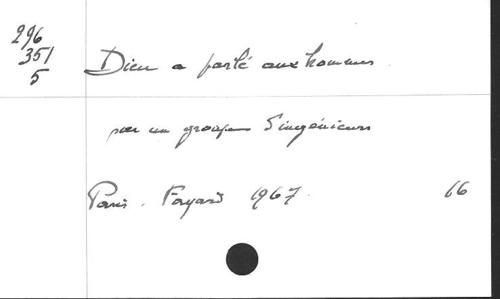 296
351
5
Dieu a parlé aux hommes.
par un groupe d'ingénieurs
Paris. Fayard 1967. 16